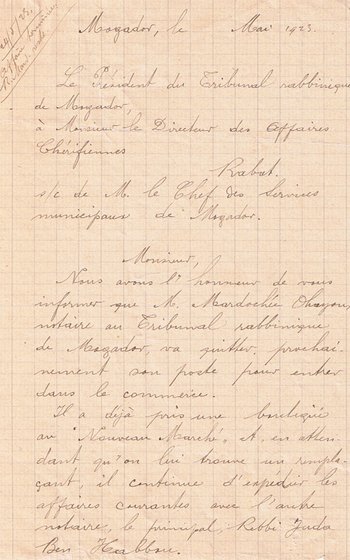 24/5/23
Mogador, le Mai 1923.
Le Président du Tribunal rabbinique
de Mogador,
à Monsieur le Directeur des Affaires
Chérifiennes
Rabat.
s/c de M. le Chef des Services
municipaux de Mogador.
Monsieur,
Nous avons l'honneur de vous
informer que M. Mardochée Ohayon,
notaire au Tribunal rabbinique
de Mogador, va quitter, prochai-
nement son poste pour entrer
dans le commerce.
Il a déjà pris une boutique
au "Nouveau Marché". Et, en atten-
dant qu'on lui trouve un rempla-
çant, il continue d'expédier les
affaires courantes avec l'autre
notaire, le principal, Rebbi Juda
Ben